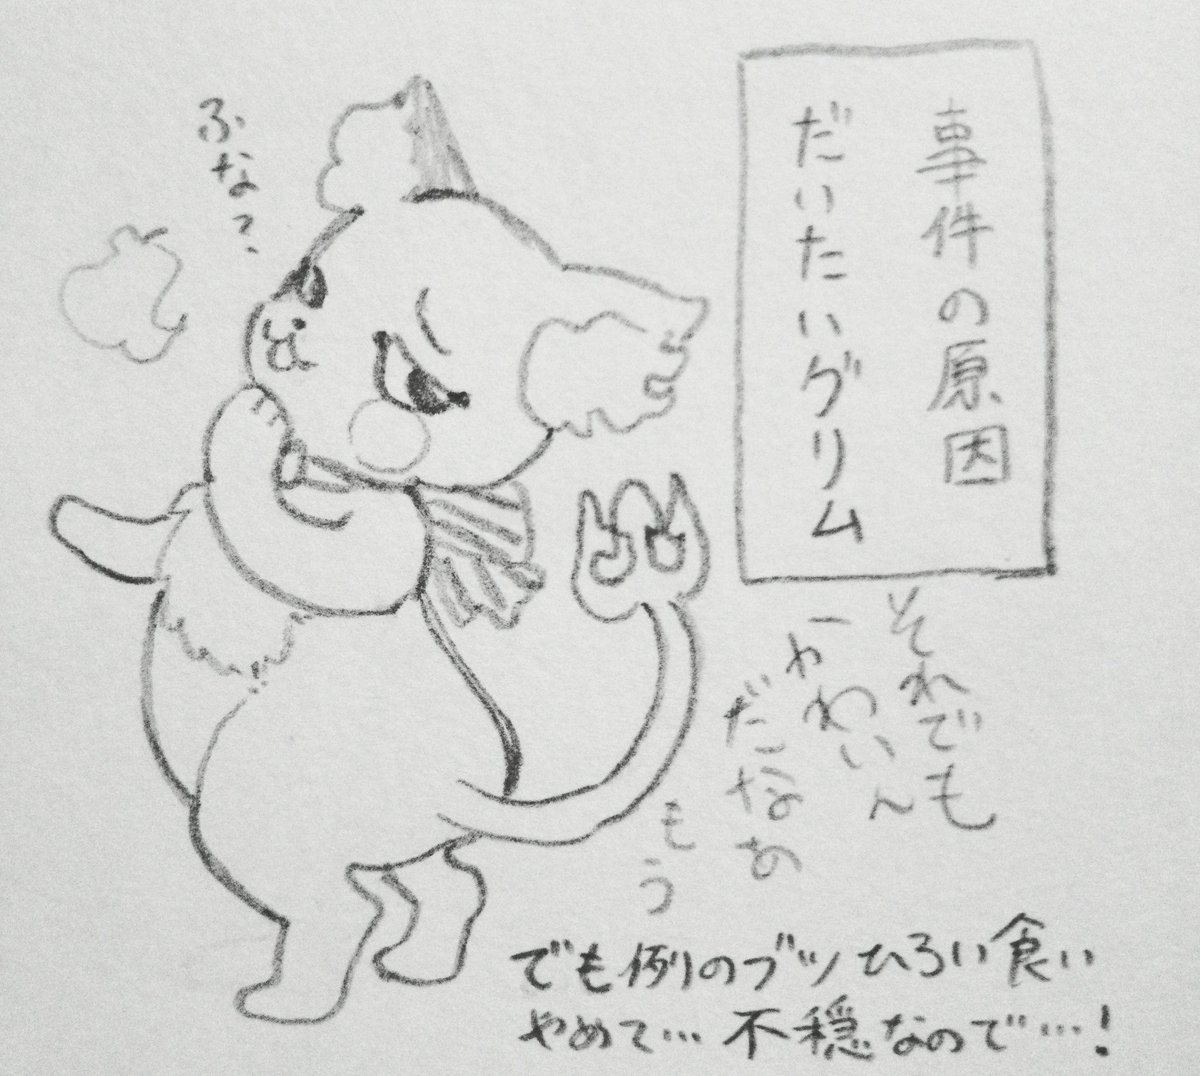 事件の原因
だいたいグリム
ふな？
それでも
かわいん
だなあ
もう
でも例のブツひろい食い
やめて…不穏なので…！